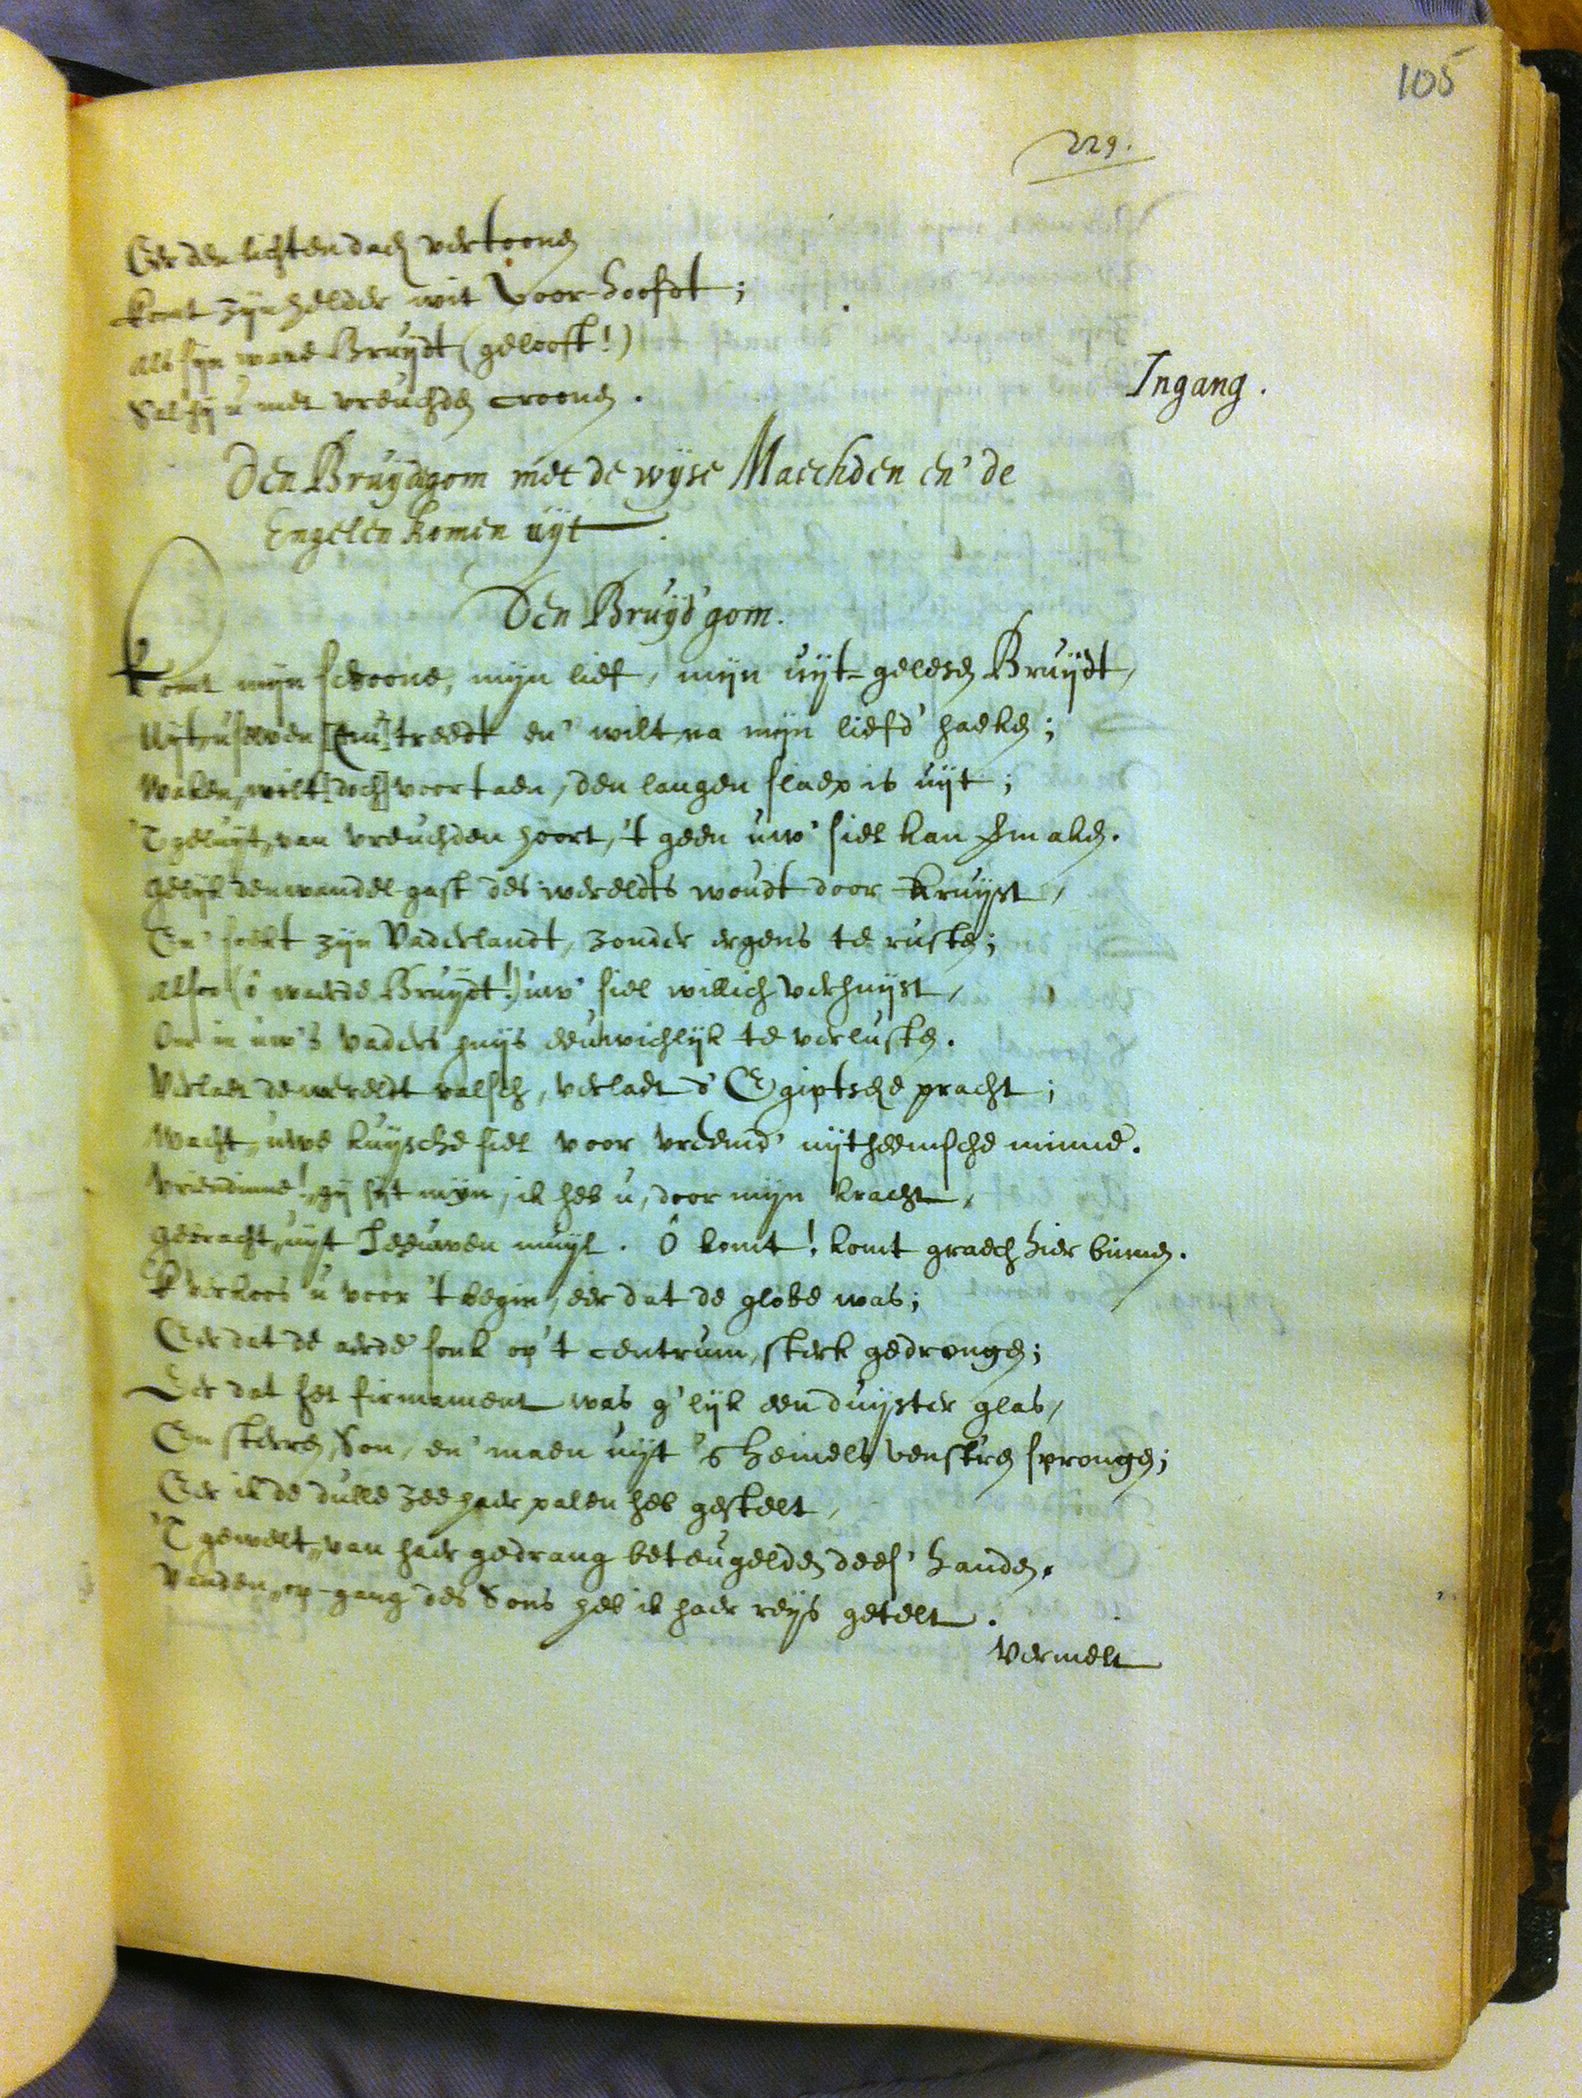 105
229.
Eer den lichten dach vertoonen
komt zijn helder wit Voor-hoofdt;
Als sijn ware Bruydt (gelooft!)
Sal hij u met vreuchden croonen.
Ingang.
Den Bruydgom met de wyse Maechden en' de
Engelen komen uyt.
Den Bruyd'gom.
Komt mijn schoone, mijn lief, mijn uyt-gelesen Bruydt,
Uyt uselven [nu] treedt en' wilt na mijn liefd' haeken;
Waken, wilt [doch] voortaen, den langen slaep is uyt;
'T geluyt, van vreuchden hoort, 't geen uw' siel kan smaken.
Gelijk den wandel-gast des werelds woudt door kruyst,
En' soekt zijn Vaderlandt, zonder ergens te rusten;
Alsoo (ô waerde Bruydt!) uw' siel willich verhuyst,
Om in uw's vaders huys eeuwichlijk te verlusten.
Verlaet de wereldt valsch, verlaet d' Egiptsche pracht;
Wacht, uwe kuysche siel voor vreemd' uytheemsche minne.
Vriendinne! gij sijt mijn, ik heb u, door mijn kracht,
Gebracht, uyt Leeuwen muyl. Ô komt! komt graech hier binnen.
'K verkoos u voor 't begin, eer dat de globe was;
Eer dat de aerde sonk op 't centrum, sterk gedrongen;
Eer dat het firmament was g'lijk een duyster glas,
En sterren, Son, en' maen uyt 's hemels venstren sprongen;
Eer ik de dulle zee haer palen heb gestelt,
'T gewelt, van haer gedrang beteugelden dees' handen.
Van den op-gang des Sons heb ik haer reys getelt.
Vermelt